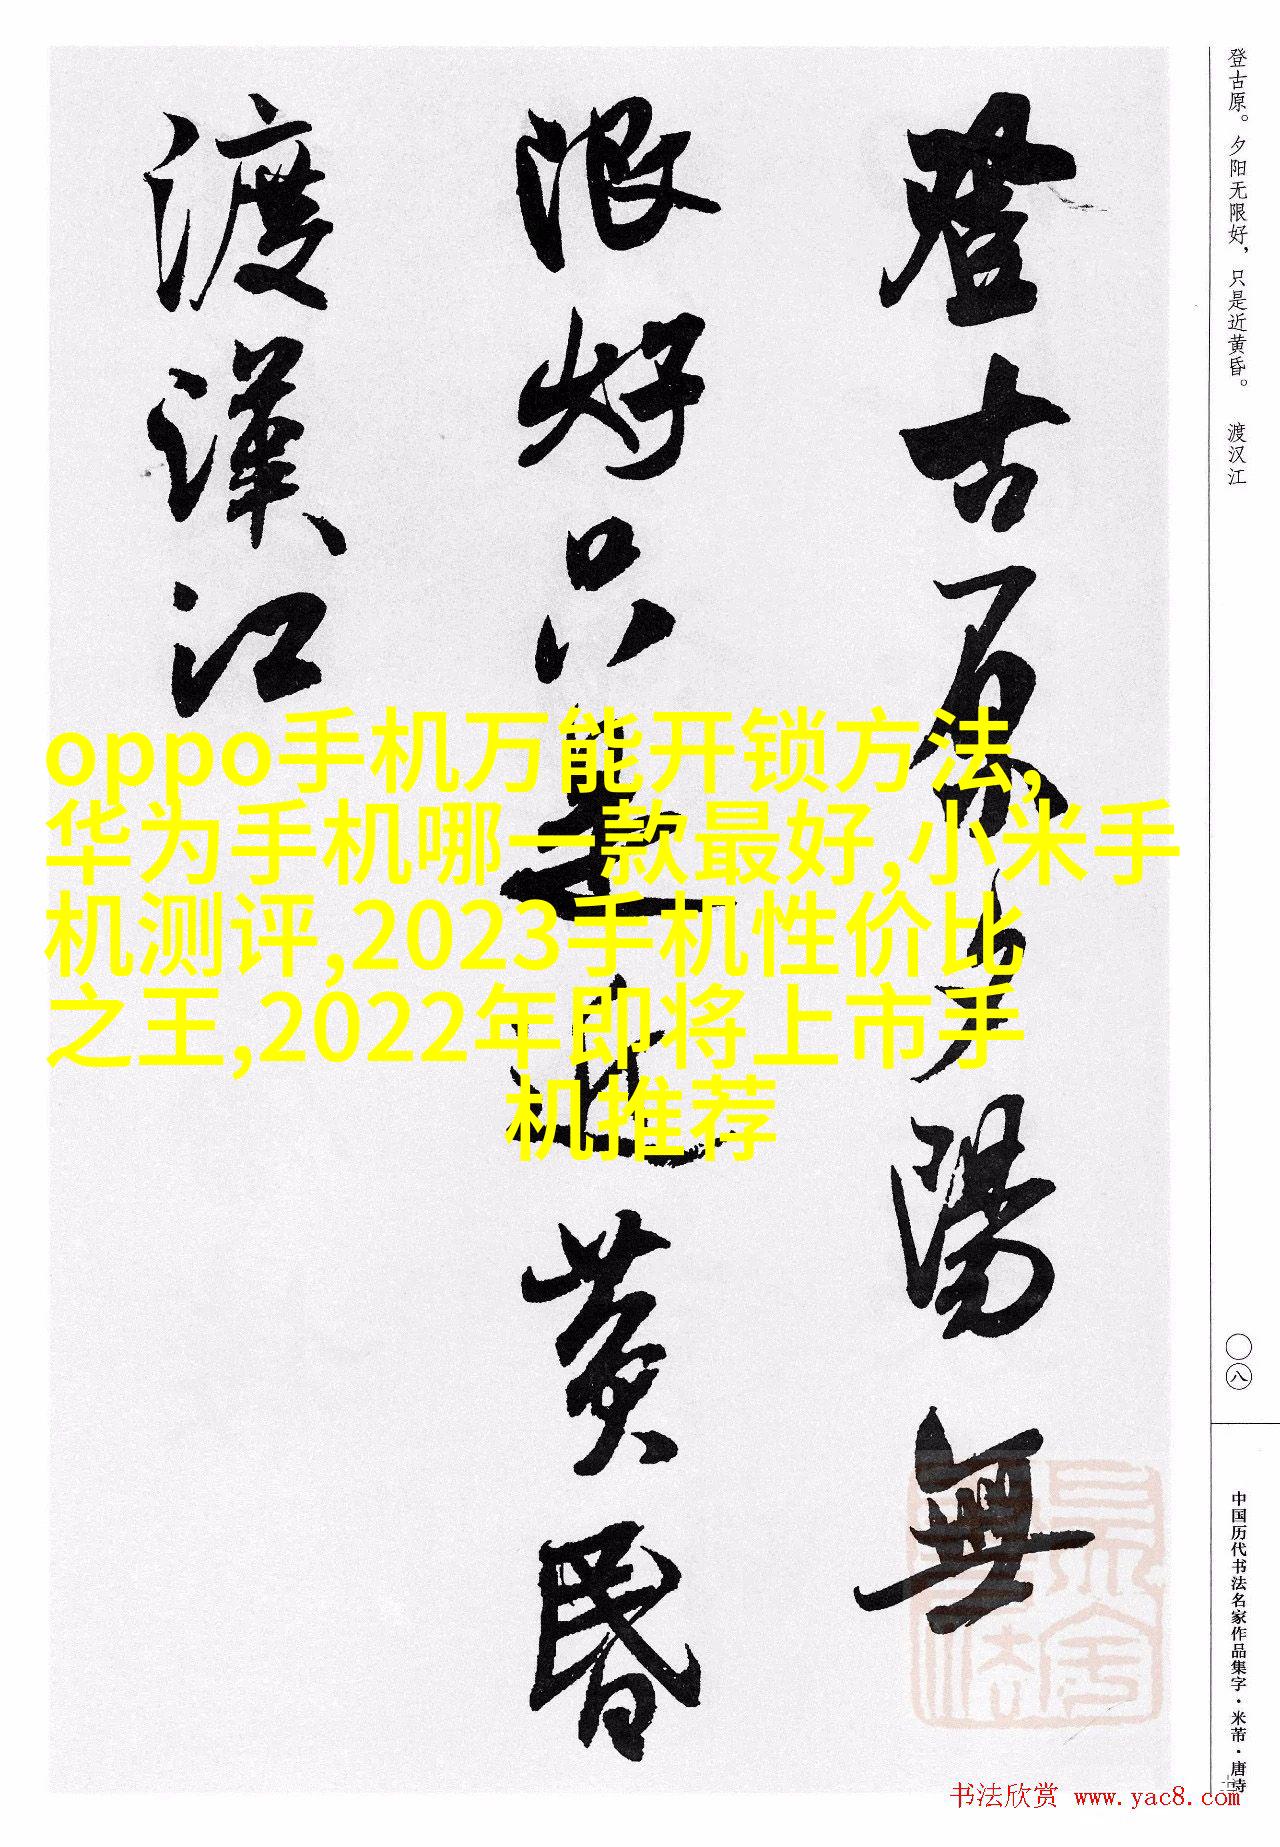 登古原。夕阳无限好，只是近黄昏。 渡汉江
登古原夕陽無
限好只是近黄昏
渡漢江
oppo手机万能开锁方法,
华为手机哪一款最好,小米手
机测评,2023手机性价比
之王,2022年即将上市手
机推荐
〇八
中国历代书法名家作品集字·米芾·唐诗
书法欣赏 www.yac8.com